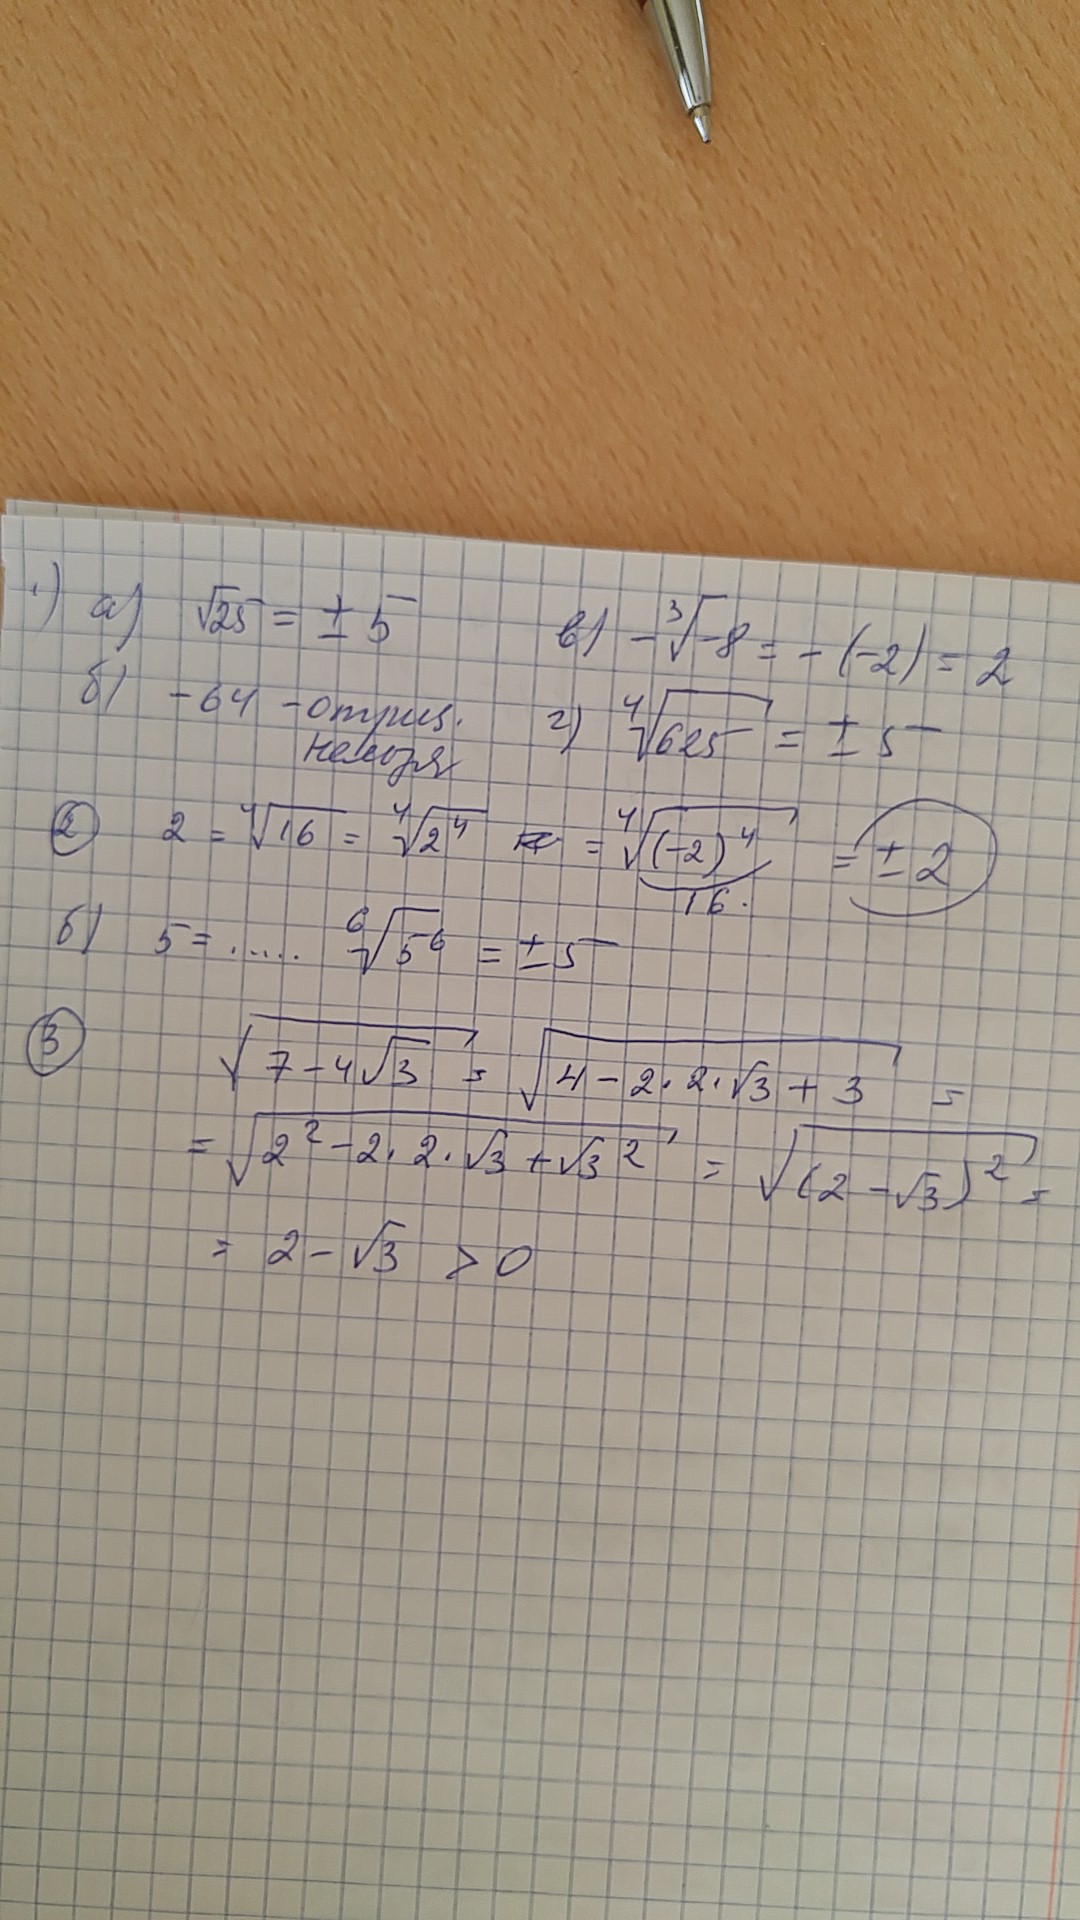 1) а) √25 = ± 5 в) -∛-8 = -(-2) = 2
б) -64 - отриц. г) ⁴√625 = ± 5
нельзя
② 2 = ⁴√16 = ⁴√2⁴ = ⁴√(-2)⁴ = ± 2
16.
б) 5 = ..... ⁶√5⁶ = ± 5
③ √7 - 4√3 = √4 - 2 · 2 · √3 + 3 =
= √2² - 2 · 2 · √3 + √3² = √(2 - √3)² =
= 2 - √3 > 0